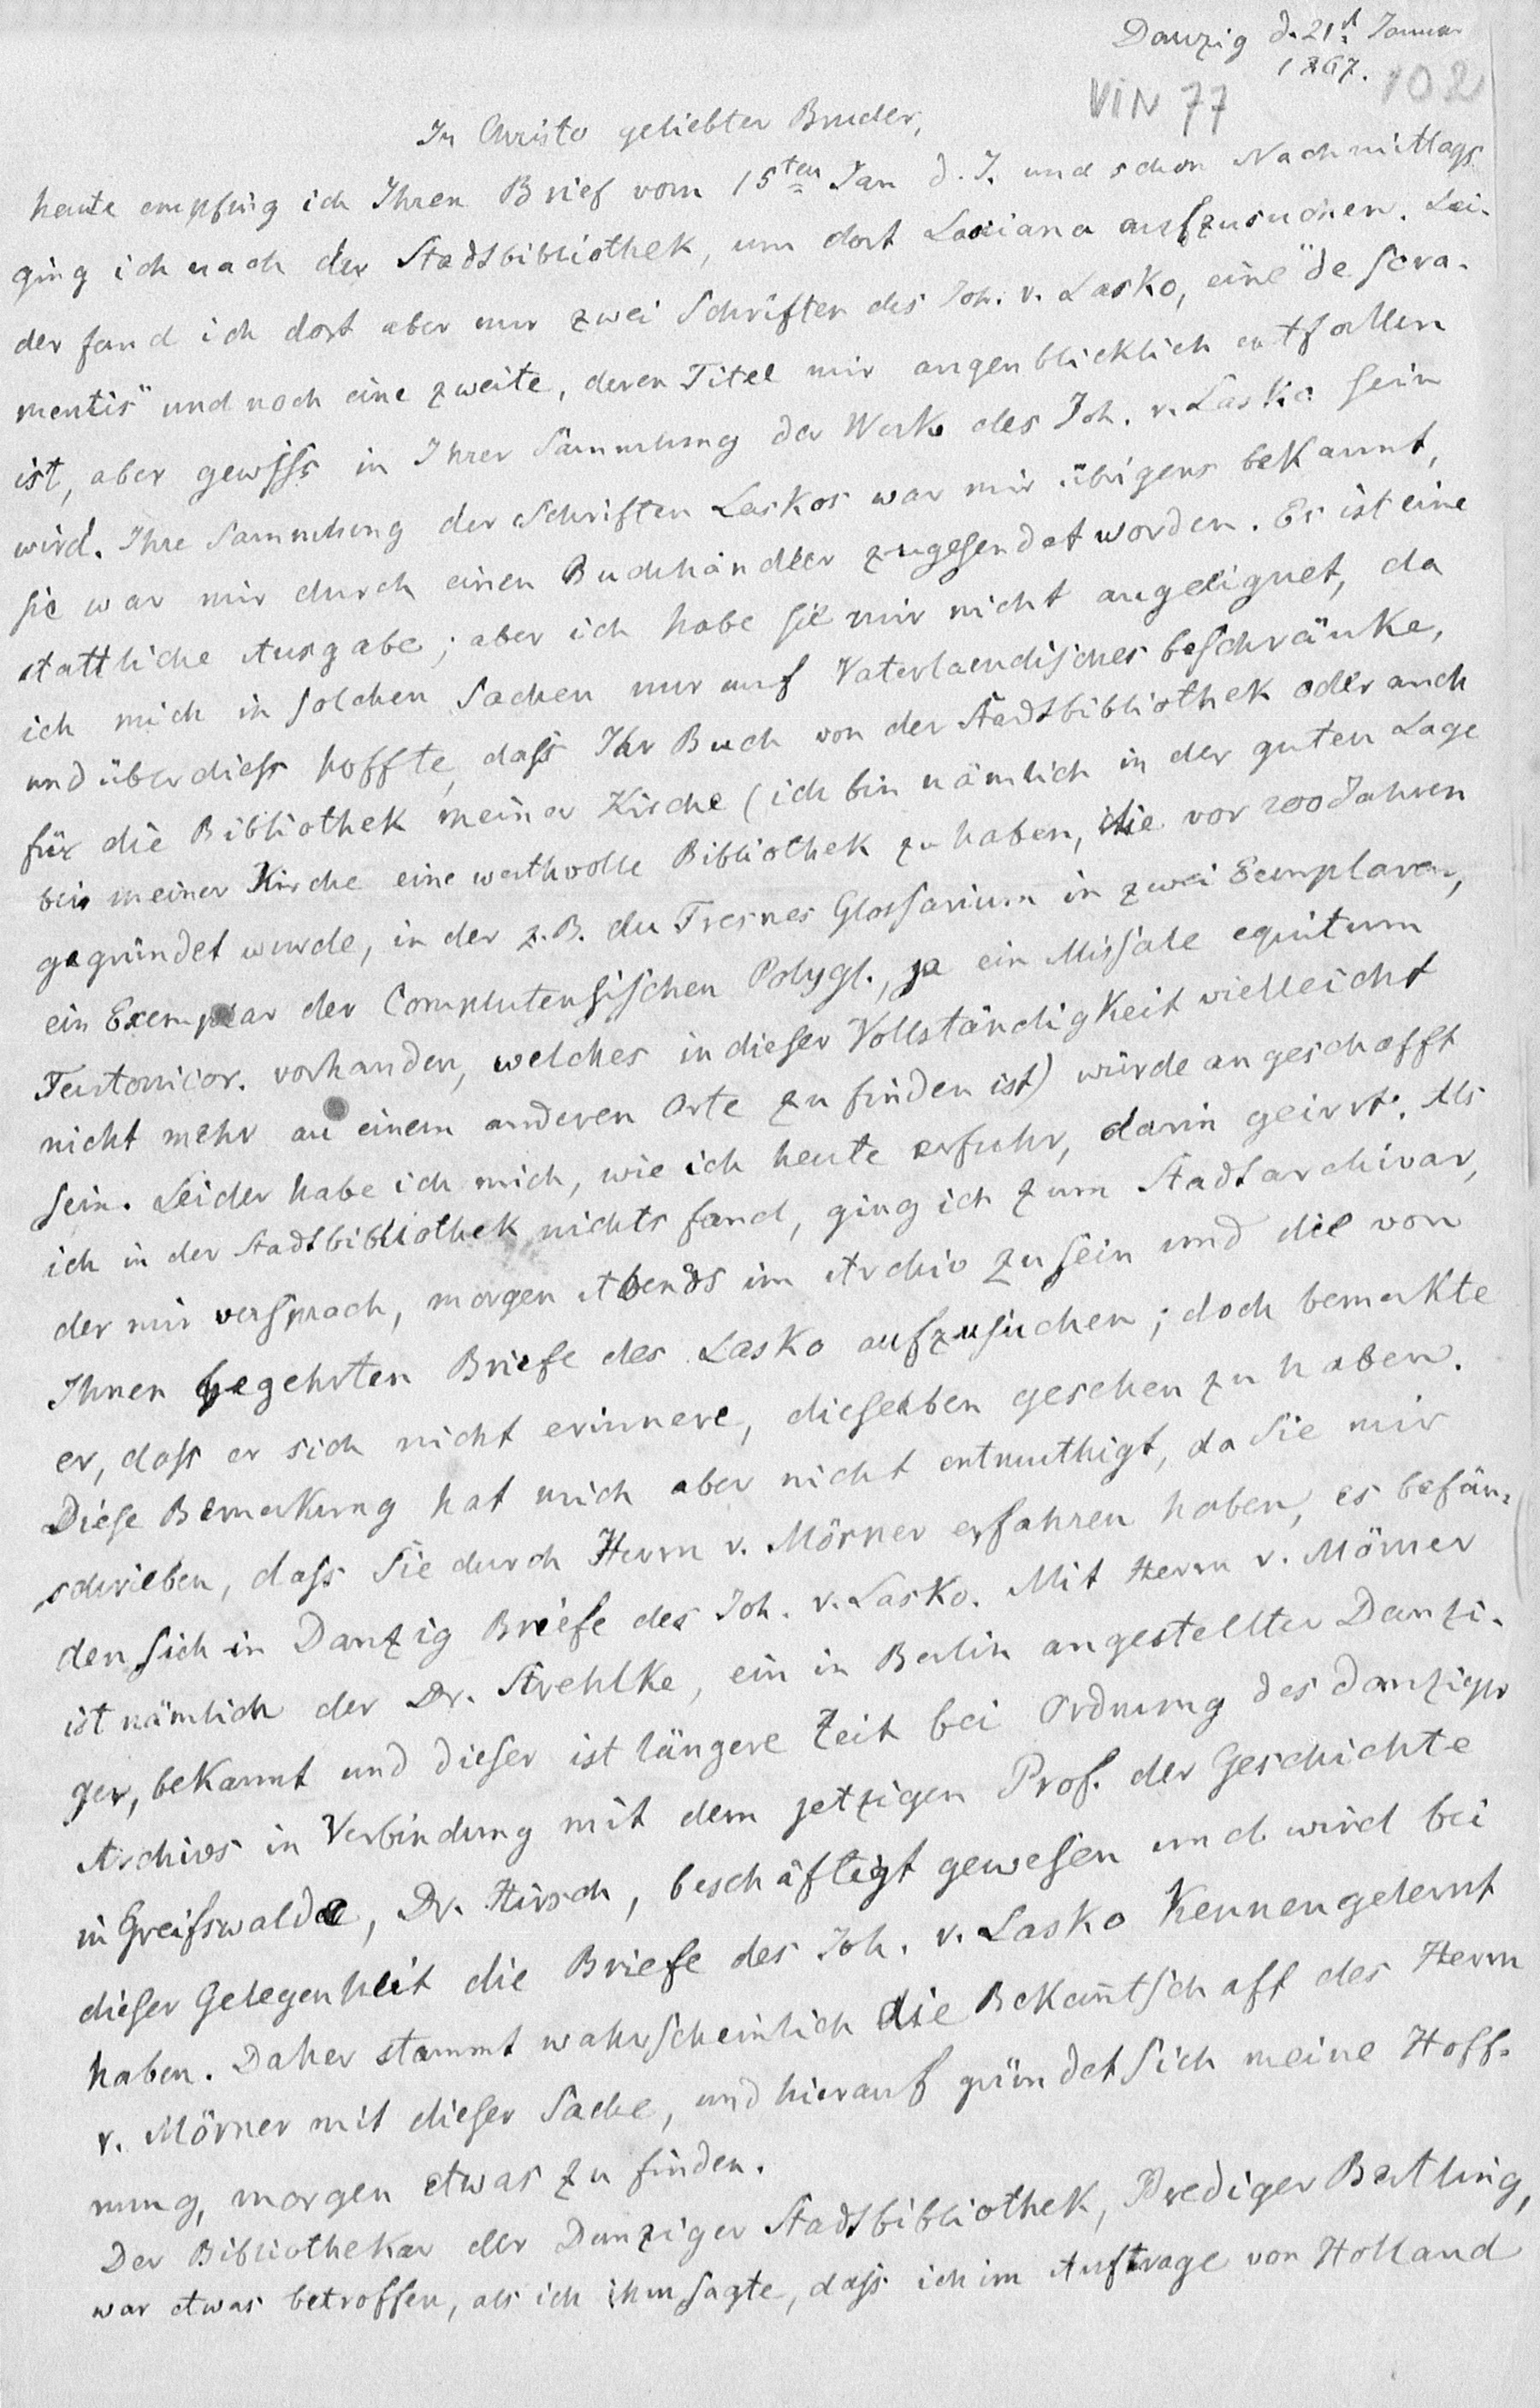 Danzig d. 21t. Januar
1867.
102
VIN 77
In Christo geliebter Bruder,
heute empfing ich Ihren Brief vom 15ten Jan d. J. und schon Nachmittags
ging ich nach der Stadtbibliothek, um dort Lasciana aufzusuchen. Lei-
der fand ich dort aber nur zwei Schriften des Joh. v. Lasko, eine "de scra-
mentis" und noch eine zweite, deren Titel mir augenblicklich entfallen
ist, aber gewiss in Ihrer Sammlung der Werke des Joh. v. Lasko sein
wird. Ihre Sammlung der Schriften Laskos war mir übrigens bekannt,
sie war mir durch einen Buchhändler zugesendet worden. Es ist eine
stattliche Ausgabe; aber ich habe sie mir nicht angeeignet, da
ich mich in solchen Sachen nur auf Vaterlaendisches beschränke,
und überdiess hoffte, dass Ihr Buch von der Stadtbibliothek oder auch
für die Bibliothek meiner Kirche (ich bin nämlich in der guten Lage
bei meiner Kirche eine werthvolle Bibliothek zu haben, die vor 200 Jahren
gegründet wurde, in der z. B. du Fresnes Glossarium in zwei Exemplaren,
ein Exemplar der Complutensischen Polygl., ja ein Missale equitum
Teutonicor. vorhanden, welches in dieser Vollständigkeit vielleicht
nicht mehr an einem anderen Orte zu finden ist) würde angeschafft
sein. Leider habe ich mich, wie ich heute erfuhr, darin geirrt. Als
ich in der Stadtbibliothek nichts fand, ging ich zum Stadtarchivar,
der mir versprach, morgen Abends im Archiv zu sein und die von
Ihnen begehrten Briefe des Lasko aufzusuchen; doch bemerkte
er, dass er sich nicht erinnere, dieselben gesehen zu haben.
Diese Bemerkung hat mich aber nicht entmuthigt, da Sie mir
schrieben, dass Sie durch Herrn v. Mörner erfahren haben, es befän-
den sich in Danzig Briefe des Joh. v. Lasko. Mit Herrn v. Mörner
ist nämlich der Dr. Strehlke, ein in Berlin angestellter Danzi-
ger, bekannt und dieser ist längere Zeit bei Ordnung des Danziger
Archivs in Verbindung mit dem jetzigen Prof. der Geschichte
in Greifswalde, Dr. Hirsch, beschäftigt gewesen und wird bei
dieser Gelegenheit die Briefe des Joh. v. Lasko kennengelernt
haben. Daher stammt wahrscheinlich die Bekan̅tschaft des Herrn
v. Mörner mit dieser Sache, und hierauf gründet sich meine Hoff-
nung, morgen etwas zu finden.
Der Bibliothekar der Danziger Stadtbibliothek, Prediger Bertling,
war etwas betroffen, als ich ihm sagte, dass ich im Auftrage von Holland